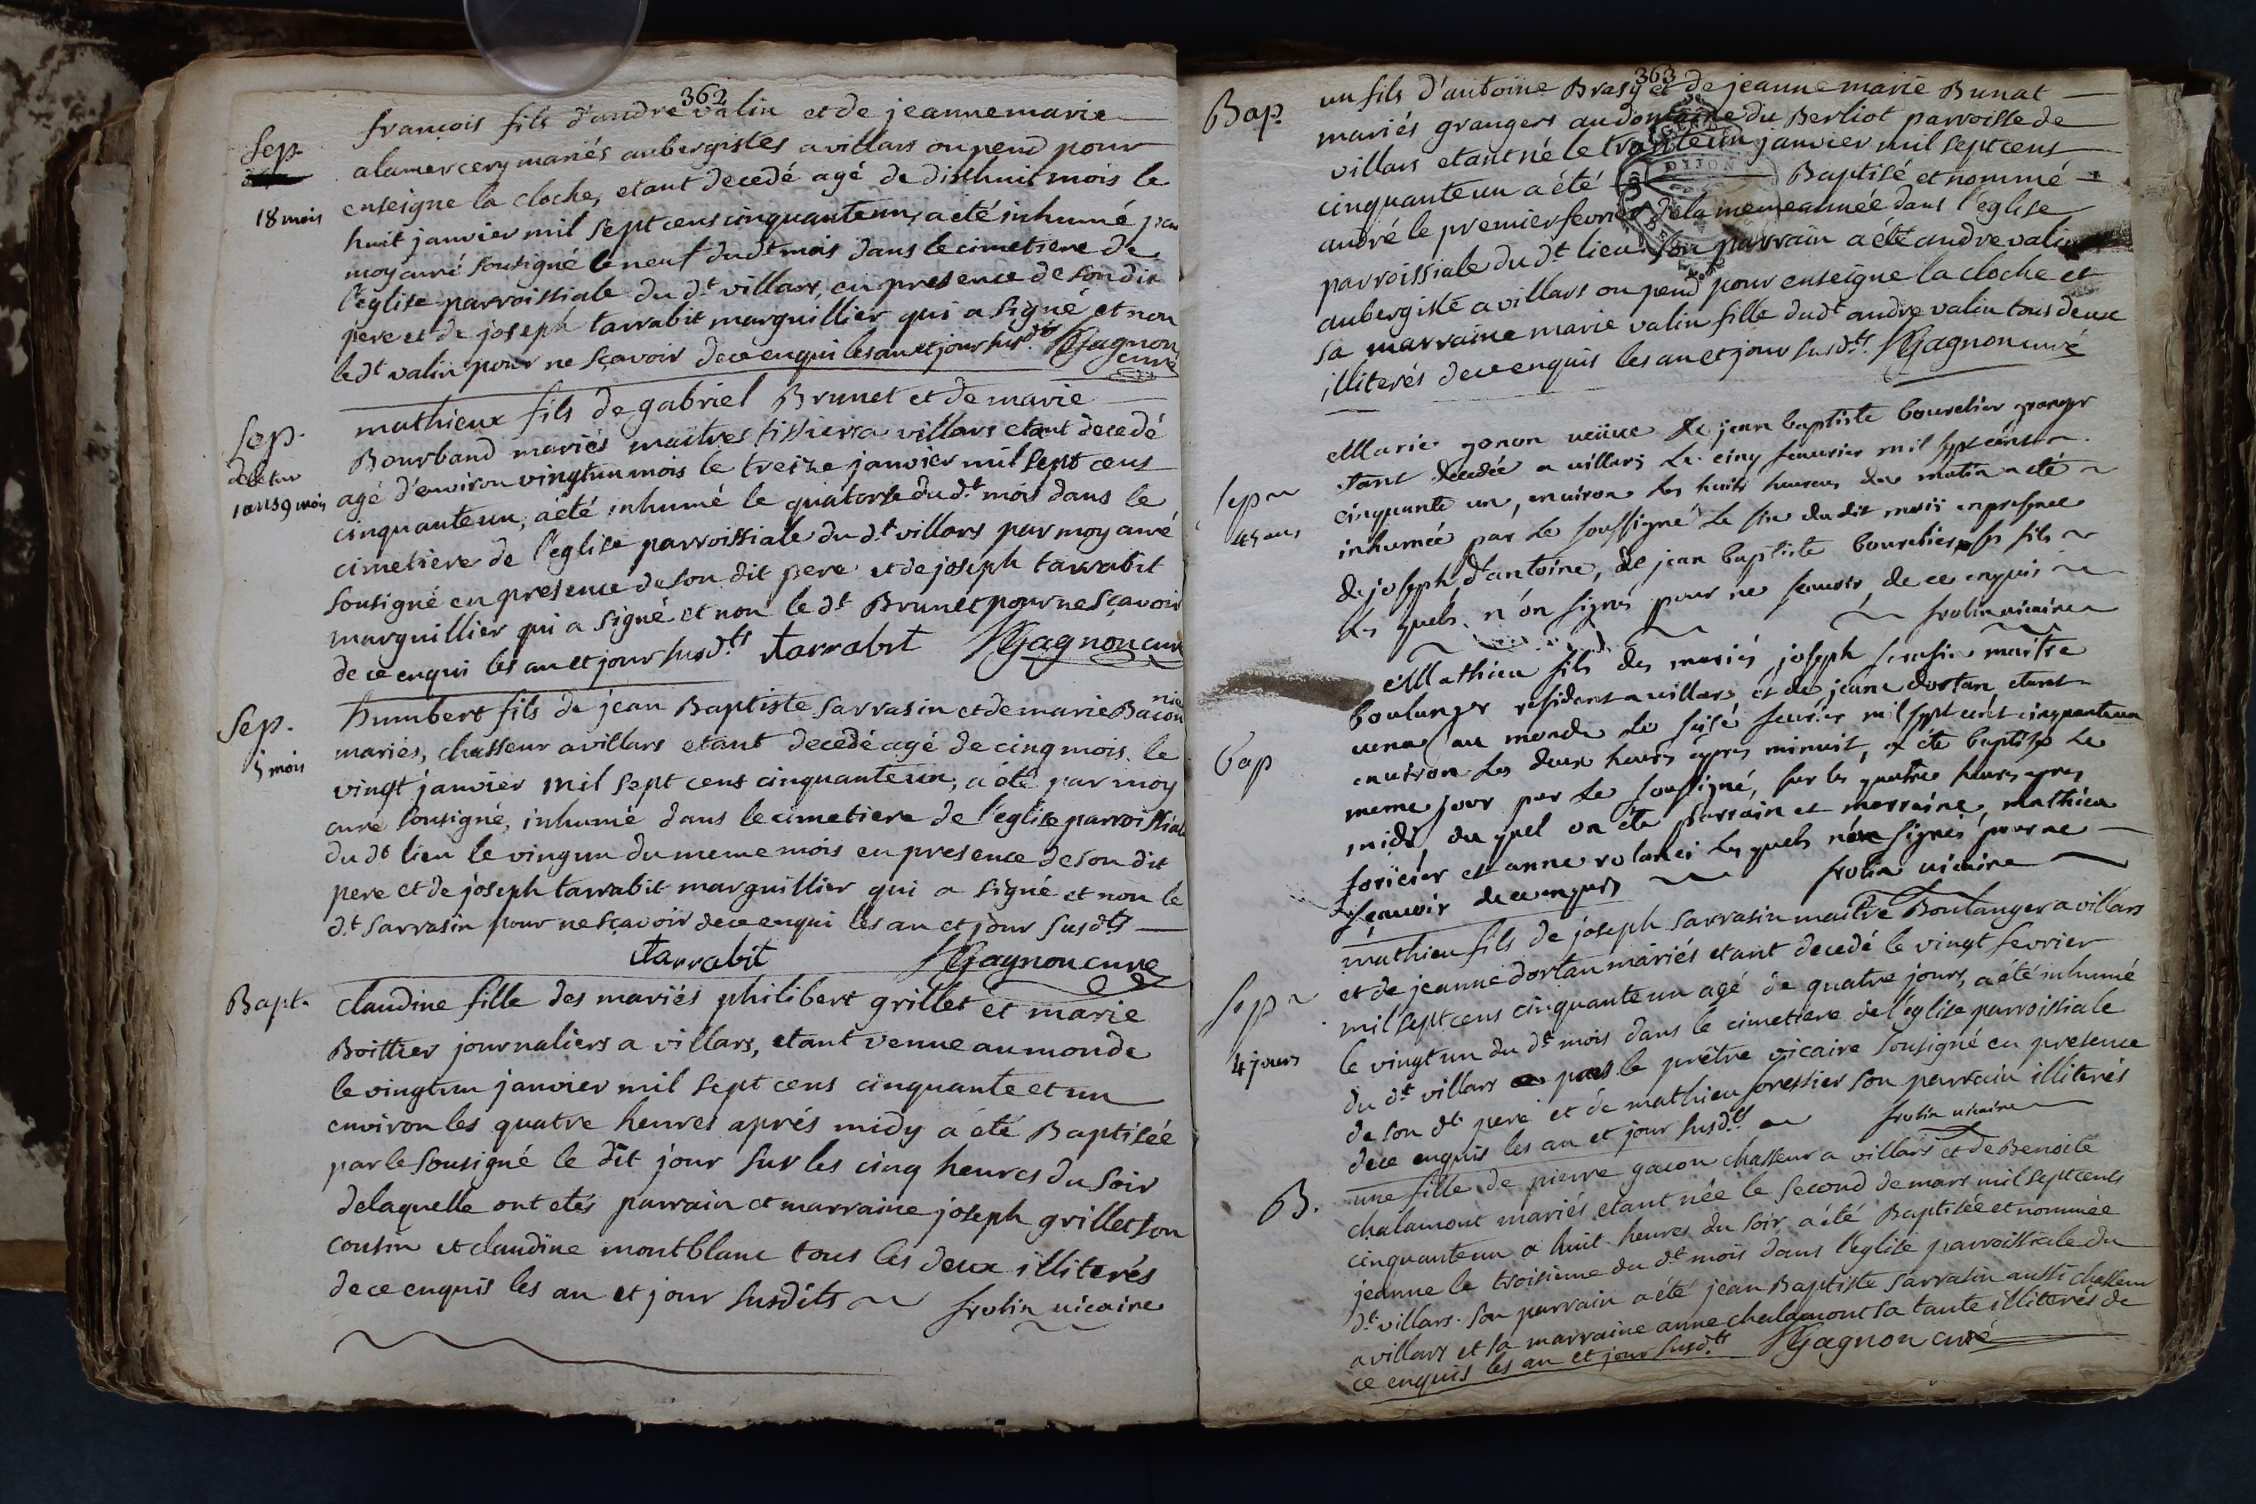 362
Sep.
18 mois
françois fils d'andre valin et de jeanne marie
alamercery mariés aubergistes a villars ou pend pour
enseigne la cloche, etant decedé agé de dixhuit mois le
huit janvier mil sept cens cinquanteun, a eté inhumé par
moy curé sousigné le neuf dudt mois dans le cimetiere de
l'eglise parroissiale du dt villars, en presence de son dit
pere et de joseph tarrabit marguillier qui a signé et non
le dt valin pour ne sçavoir de ce enqui les an et jour susdts Gagnon
curé
Sep.
1 an 9 mois
mathieux fils de gabriel Brunet et de marie
Bourband mariés maitres tissiers a villars etant decedé
agé d'environ vingtun mois le treize janvier mil sept cens
cinquanteun, a été inhumé le quatorse du dt mois dans le
cimetiere de l'eglise parroissiale du dt villars par moy curé
sousigné en presence de son dit pere et de joseph tarrabit
marguillier qui a signé et non le dt Brunet pour ne sçavoir
de ce enqui les an et jour susdts tarrabit Gagnon curé
Sep.
5 mois
humbert fils de jean Baptiste sarrasin et de marie Bacon
nie
mariés, chasseur a villars etant decédé agé de cinq mois le
vingt janvier mil sept cens cinquanteun, a été par moy
curé sousigné, inhumé dans le cimetiere de l'eglise parroissiale
du dt lieu le vingun du meme mois en presence de son dit
pere et de joseph tarrabit marguillier qui a signé et non le
dt sarrasin pour ne sçavoir de ce enqui les an et jour susdts
tarrabit Gagnon curé
Bapt.
claudine fille des mariés philibert grillet et marie
Boittier journaliers a villars, etant venue au monde
le vingtun janvier mil sept cens cinquante et un
environ les quatre heures aprés midy a été Baptisée
par le sousigné le dit jour sur les cinq heures du soir
de laquelle ont etés parrain et marraine joseph grillet son
cousin et claudine montblanc tous les deux illiterés
de ce enquis les an et jour susdits frolin vicaire
363
Bap.
un fils d'antoine Brasy et de jeanne marie Bunat
mariés grangers au domaine du Berliot parroisse de
villars etant né le trenteun janvier mil sept cens
cinquanteun a été Baptisé et nommé
andré le premier fevrier de la meme année dans l'eglise
parroissiale du dt lieu son parrain a été andre valin
aubergiste a villars ou pend pour enseigne la cloche et
sa marraine marie valin fille dudt andre valin tous deux
illiterés de ce enquis les an et jour susdts Gagnon curé
Sep
45 ans
Marie gonon veüve de jean baptiste bourelier granger
etant decedée a villars le cinq feuurier mil sept cents
cinquante un, enuiron les huits heures du matin a eté
inhumée par le soussigné le six du dit mois en presence
de joseph, d'antoine, de jean baptiste bourelier ses fils
les quels n'on signés pour ne scauoir, de ce enquis
frolin uicaire
Bap
Mathieu fils des mariés joseph sarasin maitre
boulanger residant a uillars et de jeane dortan, etant
uenu au monde le seisé feurier mil sept cent cinquanteun
enuiron les deux heures apres minuit, a éte baptisé le
meme jour par le soussigné, sur les quatre heures apres
midi, du quel on éte parrain et marraine, mathieu
foricier et anne rolanci les quels n'on signés pour ne
sçauoir de ce enquis frolin uicaire
Sep
4 jours
mathieu fils de joseph sarrasin maitre Boulanger a villars
et de jeanne dortan mariés etant decedé le vingt fevrier
mil sept cens cinquanteun agé de quatre jours, a été inhumé
le vingt un du dt mois dans le cimetiere de l'eglise parroissiale
du dt villars par le prêtre vicaire sousigné en presence
de son dt pere et de mathieu foressier son parrain illiterés
de ce enquis les an et jour susdts frolin uicaire
B.
une fille de pierre gacon chasseur a villars et de Benoite
chalamont mariés etant née le second de mars mil sept cens
cinquanteun a huit heures du soir a été Baptisée et nommée
jeanne le troisieme du dt mois dans l'eglise parroissiale du
dt villars. son parrain a été jean Baptiste sarrasin aussi chasseur
a villars et sa marraine anne chalamont sa tante illiterés de
ce enquis les an et jour susdts Gagnon curé